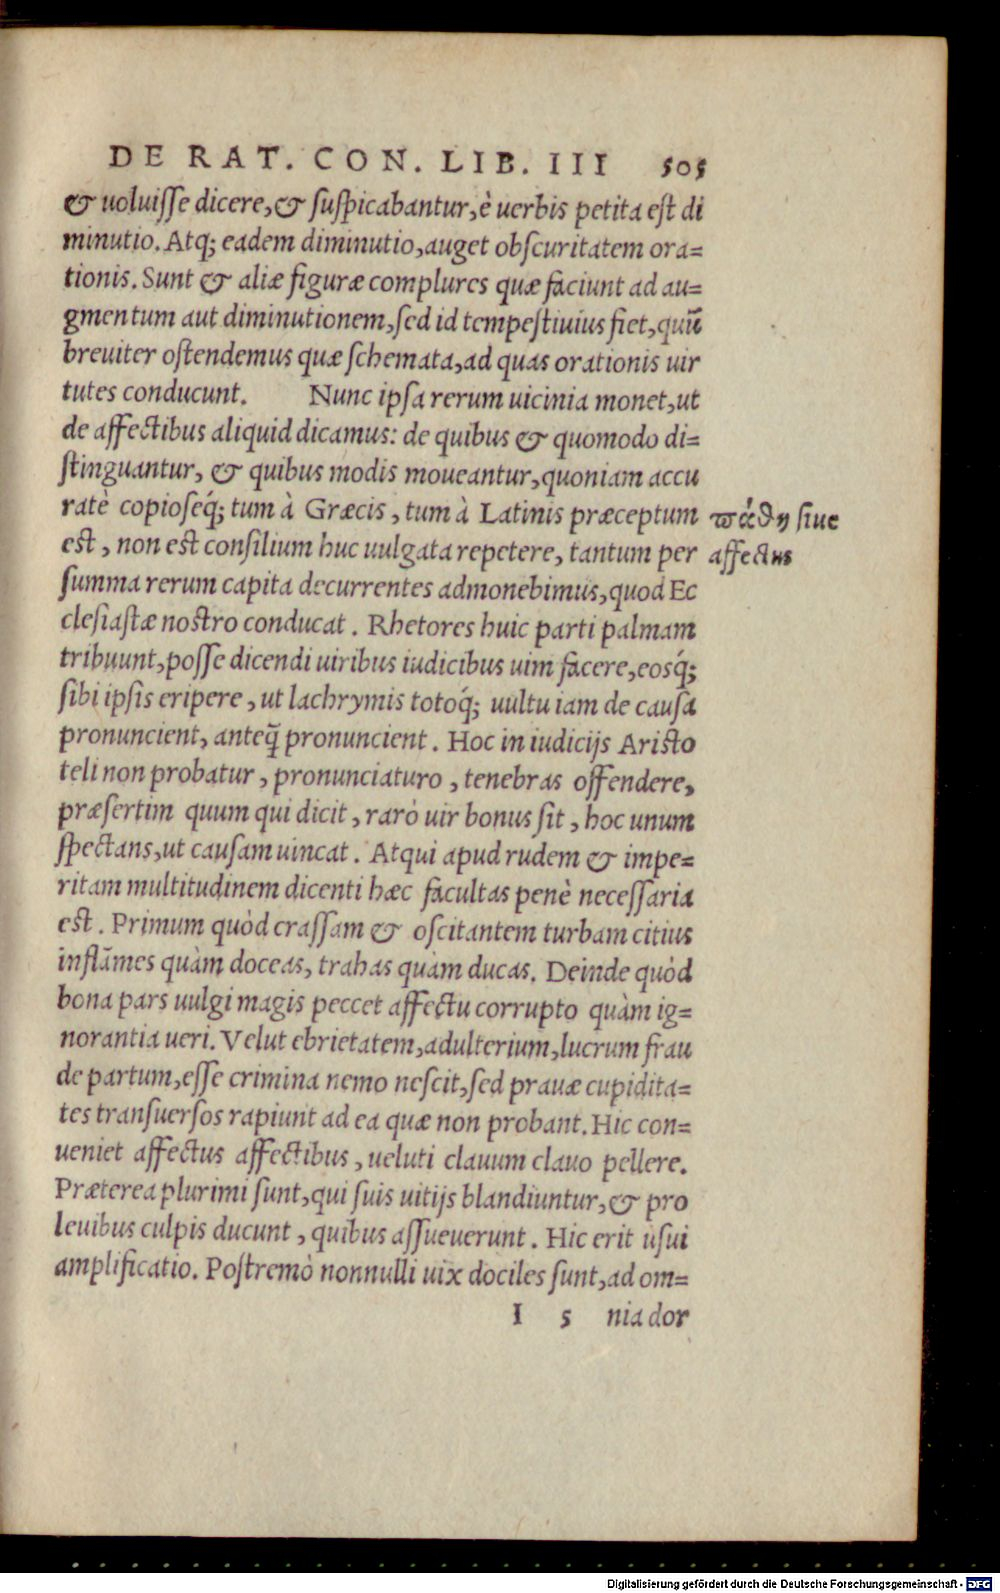 DE RAT. CON. LIB. III 505
& uoluisse dicere, & suspicabantur, è uerbis petita est di
minutio. Atq; eadem diminutio, auget obscuritatem ora=
tionis. Sunt & aliæ figuræ complures quæ faciunt ad au=
gmentum aut diminutionem, sed id tempestiuius fiet, quū
breuiter ostendemus quæ schemata, ad quas orationis uir
tutes conducunt. Nunc ipsa rerum uicinia monet, ut
de affectibus aliquid dicamus: de quibus & quomodo di=
stinguantur, & quibus modis moueantur, quoniam accu
ratè copioseq́; tum à Græcis, tum à Latinis præceptum
πάθη siue
est, non est consilium huc uulgata repetere, tantum per
affectus
summa rerum capita decurrentes admonebimus, quod Ec
clesiastæ nostro conducat. Rhetores huic parti palmam
tribuunt, posse dicendi uiribus iudicibus uim facere, eosq́;
sibi ipsis eripere, ut lachrymis totoq́; uultu iam de causa
pronuncient, anteq̃ pronuncient. Hoc in iudicijs Aristo
teli non probatur, pronunciaturo, tenebras offendere,
præsertim quum qui dicit, rarò uir bonus sit, hoc unum
spectans, ut causam uincat. Atqui apud rudem & impe=
ritam multitudinem dicenti hæc facultas penè necessaria
est. Primum quòd crassam & oscitantem turbam citius
inflāmes quàm doceas, trahas quàm ducas. Deinde quòd
bona pars uulgi magis peccet affectu corrupto quàm ig=
norantia ueri. Velut ebrietatem, adulterium, lucrum frau
de partum, esse crimina nemo nescit, sed prauæ cupidita=
tes transuersos rapiunt ad ea quæ non probant. Hic con=
ueniet affectus affectibus, ueluti clauum clauo pellere.
Præterea plurimi sunt, qui suis uitijs blandiuntur, & pro
leuibus culpis ducunt, quibus assueuerunt. Hic erit usui
amplificatio. Postremò nonnulli uix dociles sunt, ad om=
I 5 nia dor
Digitalisierung gefördert durch die Deutsche Forschungsgemeinschaft - DFG